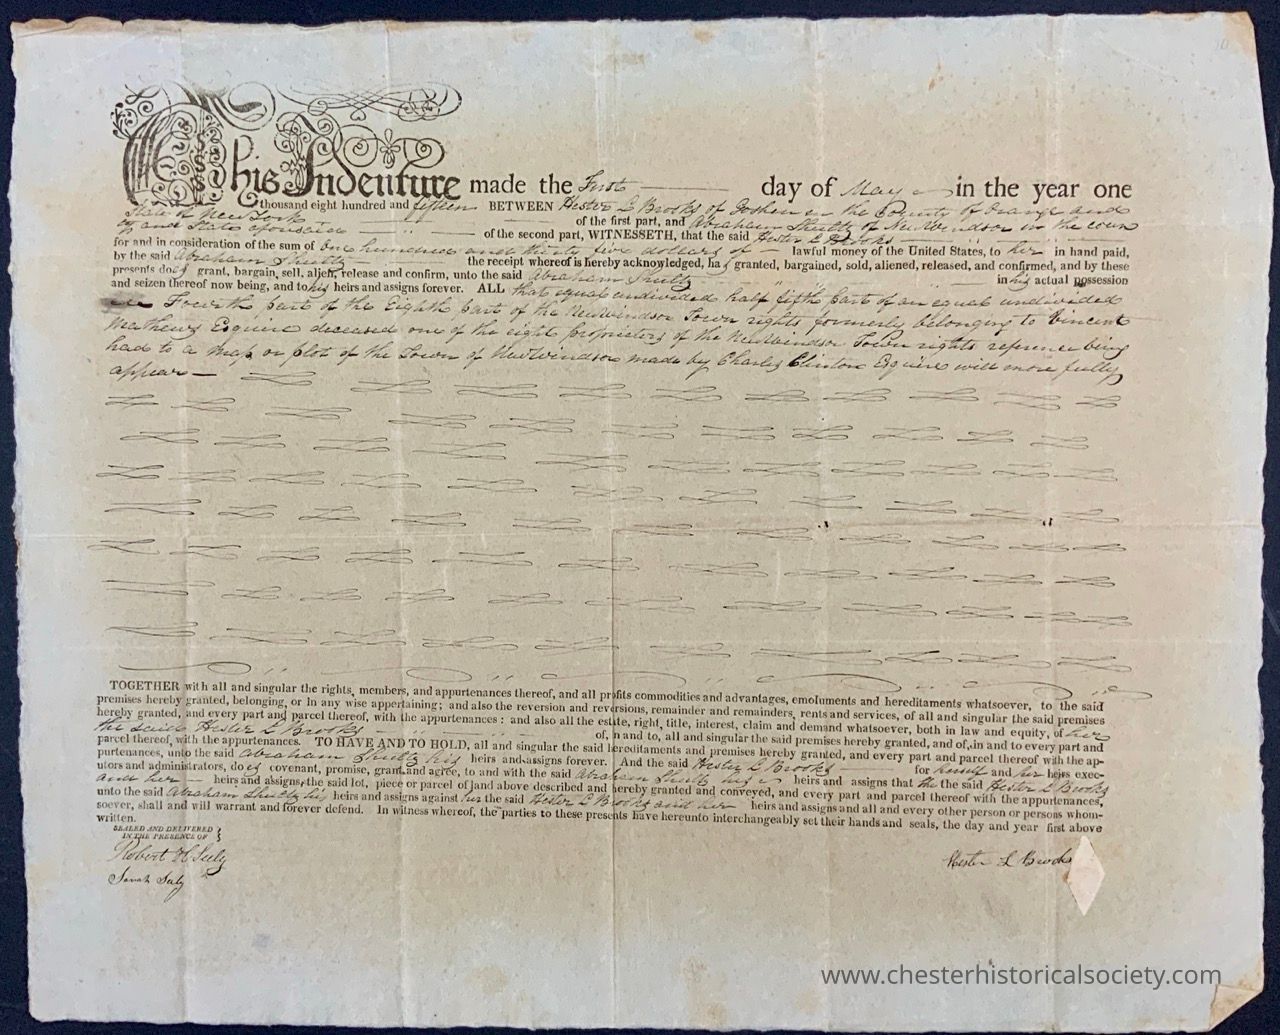 This Indenture made the First day of May in the year one
thousand eight hundred and fifteen BETWEEN Hester L Brooks of Goshen in the County of Orange and
State of New York of the first part, and Abraham Shultz of NewWindsor in the coun
ty and State aforesaid of the second part, WITNESSETH, that the said Hester L Brooks
for and in consideration of the sum of One hundred and thirty five dollars of lawful money of the United States, to her in hand paid,
by the said Abraham Shultz the receipt whereof is hereby acknowledged, has granted, bargained, sold, aliened, released, and confirmed, and by these
presents does grant, bargain, sell, alien, release and confirm, unto the said Abraham Shultz in his actual possession
and seizen thereof now being, and to his heirs and assigns forever. ALL that equal undivided half fifth part of an equal undivided
Fourth part of the Eighth part of the NewWindsor Town rights formerly belonging to Vincent
Mathews Esquire deceased one of the eight proprietors of the NewWindsor Town rights reference being
had to a map or plot of the Town of NewWindsor made by Charles Clinton Esquire will more fully
appear
TOGETHER with all and singular the rights, members, and appurtenances thereof, and all profits commodities and advantages, emoluments and hereditaments whatsoever, to the said
premises hereby granted, belonging, or in any wise appertaining; and also the reversion and reversions, remainder and remainders, rents and services, of all and singular the said premises
hereby granted, and every part and parcel thereof, with the appurtenances: and also all the estate, right, title, interest, claim and demand whatsoever, both in law and equity, of her
the said Hester L Brooks of, in and to, all and singular the said premises hereby granted, and of, in and to every part and
parcel thereof, with the appurtenances. TO HAVE AND TO HOLD, all and singular the said hereditaments and premises hereby granted, and every part and parcel thereof with the ap-
purtenances, unto the said Abraham Shultz his heirs and assigns forever. And the said Hester L Brooks for herself and her heirs exec-
utors and administrators, does covenant, promise, grant and agree, to and with the said Abraham Shultz his heirs and assigns that the the said Hester L Brooks
and her heirs and assigns, the said lot, piece or parcel of land above described and hereby granted and conveyed, and every part and parcel thereof with the appurtenances,
unto the said Abraham Shultz his heirs and assigns against her the said Hester L Brooks and her heirs and assigns and all and every other person or persons whom-
soever, shall and will warrant and forever defend. In witness whereof, the parties to these presents have hereunto interchangeably set their hands and seals, the day and year first above
written.
SEALED AND DELIVERED
IN THE PRESENCE OF
Robert H Seely
Sarah Seely
Hester L Brooks
www.chesterhistoricalsociety.com